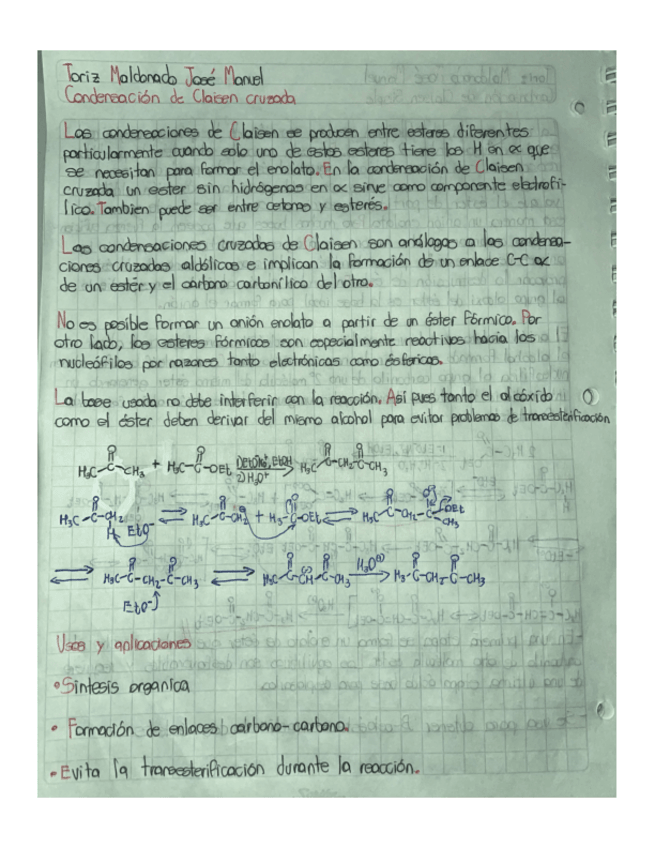 Toriz Maldonado José Manuel
Condensación de Claisen cruzada
Las condensaciones de Claisen se producen entre esteres diferentes
particularmente cuando solo uno de estos esteres tiene los H en α que
se necesitan para formar el enolato. En la condensación de Claisen
cruzada un ester sin hidrógenos en α sirve como componente electrofí-
lico. Tambien puede ser entre cetonas y esterés.
Las condensaciones cruzadas de Claisen son análogas a las condensa-
ciones cruzadas aldólicas e implican la formación de un enlace C-C α
de un estér y el carbono carbonílico del otro.
No es posible formar un anión enolato a partir de un éster fórmico. Por
otro lado, los esteres fórmicos son especialmente reactivos hacia los
nucleófilos por razones tanto electrónicas como éstericas.
La base usada no debe interferir con la reacción. Asi pues tanto el alcóxido
como el éster deben derivar del mismo alcohol para evitar problemas de transesterificación
Usos y aplicaciones
•Sintesis organica
• Formación de enlaces carbono-carbono.
•Evita la transesterificación durante la reacción.